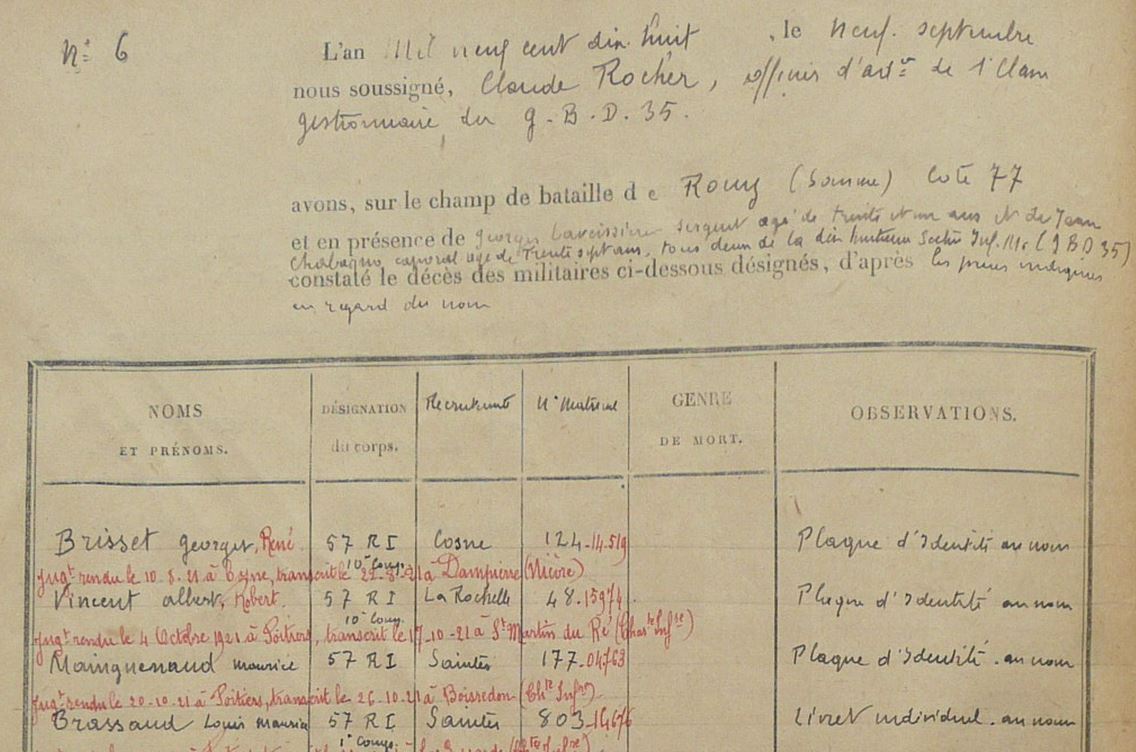 N° 6
L'an Mil neuf cent dix huit, le neuf septembre
nous soussigné, Claude Rocher, officier d'adon de 1e Classe
gestionnaire du G.B.D. 35.
avons, sur le champ de bataille de Rouy (Somme) Cote 77
et en présence de Georges Laveissière sergent agé de trente et un ans et de Jean
Chabagno, caporal agé de trente sept ans, tous deux de la dix huitième Section Inf. Mre (GBD 35)
constaté le décès des militaires ci-dessous désignés, d'après les pièces indiquées
en regard du nom
NOMS ET PRÉNOMS.
DÉSIGNATION du corps.
Recrutement
N° Matricule
GENRE DE MORT.
OBSERVATIONS.
Brisset Georges, René 57 RI Cosne 124-14.519 Plaque d'Identité au nom
10e Comp.
Jugt rendu le 10-8-21 à Cosne, transcrit le 22-8-21 à Dampierre (Nièvre)
Vincent Albert, Robert. 57 RI La Rochelle 48-15974 Plaque d'Identité au nom
10e Comp.
Jugt rendu le 4 Octobre 1921 à Poitiers, transcrit le 17-10-21 à St Martin du Ré (Charte Infre)
Mainguenaud Maurice 57 RI Saintes 177-04763 Plaque d'Identité. au nom
Jugt rendu le 20-10-21 à Poitiers, transcrit le 26-10-21 à Boisredon (Chte Infre)
Brassaud Louis Maurice 57 RI Saintes 803-16676 Livret individuel. au nom
1e Comp.